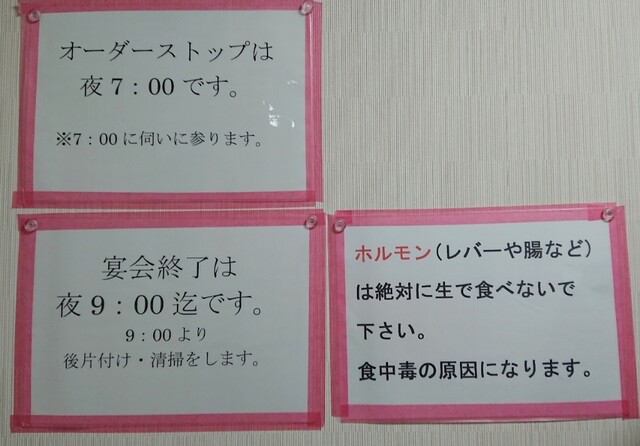 オーダーストップは
夜7：00です。
※7：00に伺いに参ります。
宴会終了は
夜9：00迄です。
9：00より
後片付け・清掃をします。
ホルモン（レバーや腸など）
は絶対に生で食べないで
下さい。
食中毒の原因になります。